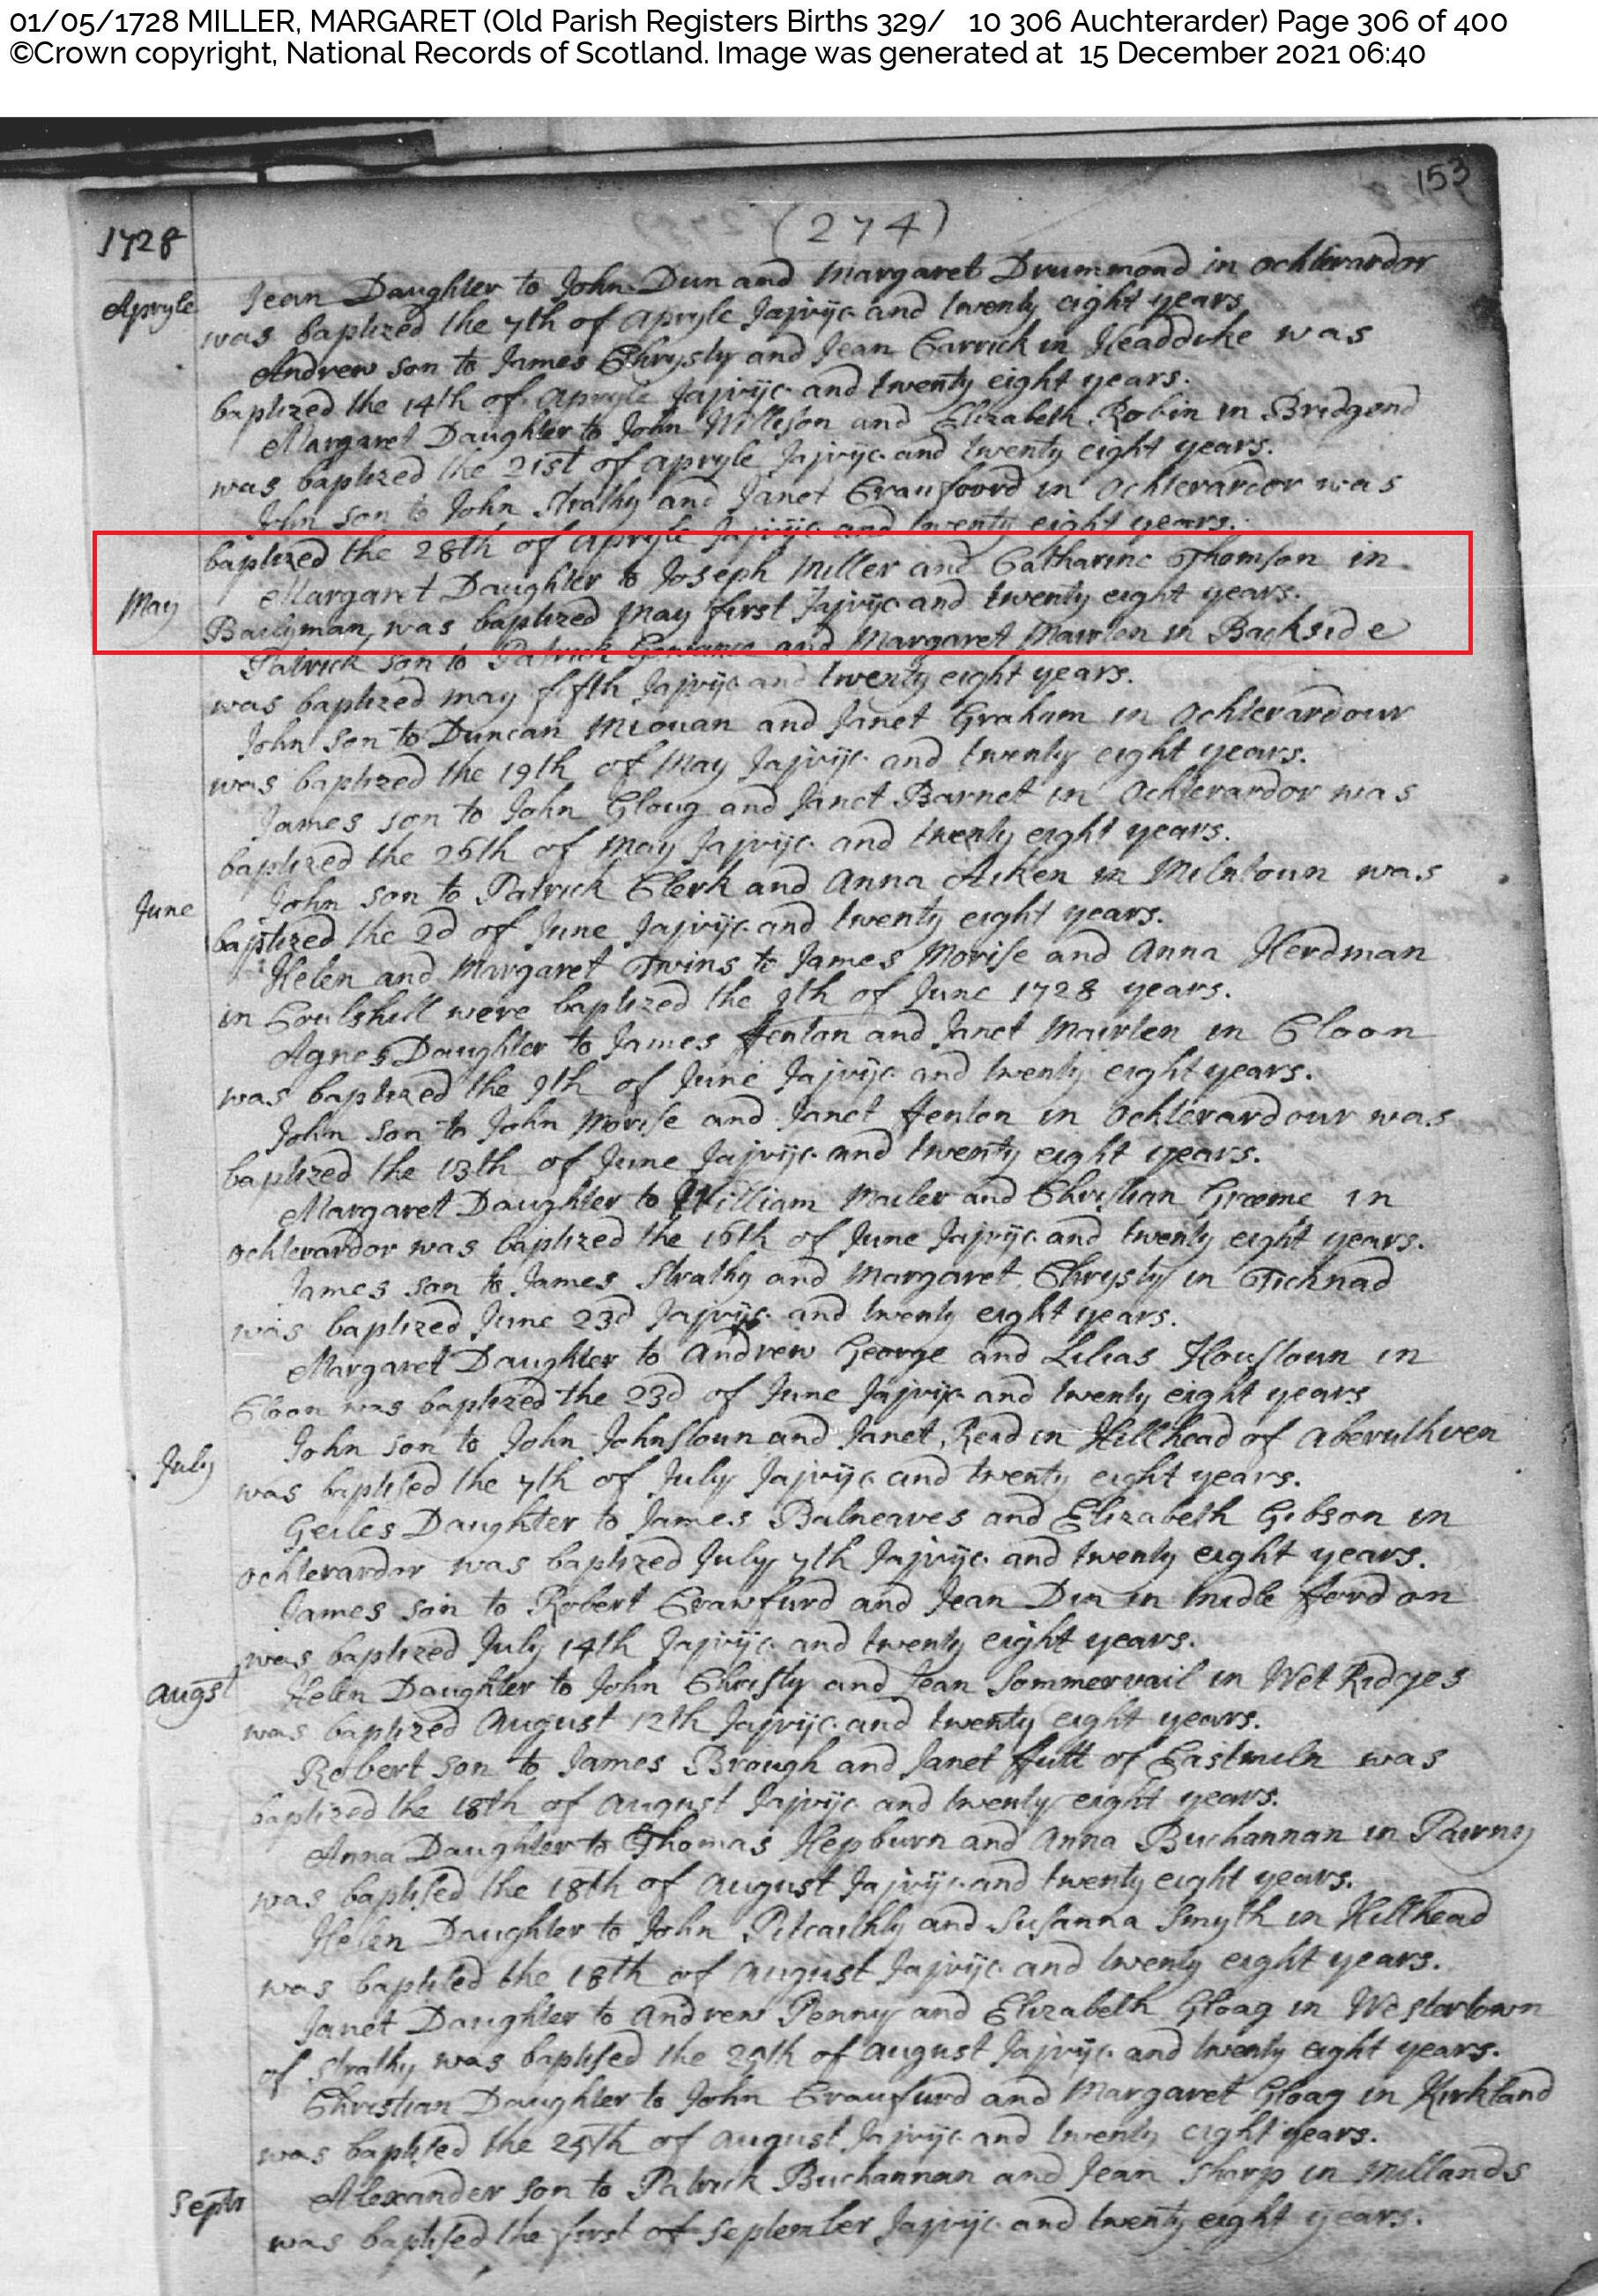 01/05/1728 MILLER, MARGARET (Old Parish Registers Births 329/ 10 306 Auchterarder) Page 306 of 400
©Crown copyright, National Records of Scotland. Image was generated at 15 December 2021 06:40
153
(274)
1728
Apryle Jean Daughter to John Dun and Margaret Drummond in ochterardor
was baptized the 7th of apryle Jajvijc and twenty eight years
Andrew son to James Chrysty and Jean Carrick in Headdike was
baptized the 14th of Apryle Jajvijc and twenty eight years.
Margaret Daughter to John Willison and Elizabeth Robin in Bridgend
was baptized the 21st of apryle Jajvijc and twenty eight years.
John son to John Strathy and Janet Craufoord in ochterardor was
baptized the 28th of apryle Jajvijc and twenty eight years.
May Margaret Daughter to Joseph Miller and Catharine Thomson in
Bailyman, was baptized May first Jajvijc and twenty eight years.
Patrick son to Patrick and Margaret Mairten in Backside
was baptized may fifth Jajvijc and twenty eight years.
John son to Duncan and Janet Graham in Ochterardour
was baptized the 19th of May Jajvijc and twenty eight years.
James son to John Gloug and Janet Barnet in Ochterardor was
baptized the 26th of May Jajvijc and twenty eight years.
June John son to Patrick Clerk and Anna Aiken in Milntoun was
baptized the 2d of June Jajvijc and twenty eight years.
Helen and Margaret Twins to James Morise and Anna Herdman
in Coulshill were baptized the 9th of June 1728 years.
Agnes Daughter to James ffenton and Janet Mairten in Cloon
was baptized the 9th of June Jajvijc and twenty eight years.
John son to John Morise and Janet ffenton in ochterardour was
baptized the 13th of June Jajvijc and twenty eight years.
Margaret Daughter to William Mailer and Christian Graeme in
ochterardor was baptized the 16th of June Jajvijc and twenty eight years.
James son to James Strathy and Margaret Chrysty in
was baptized June 23d Jajvijc and twenty eight years.
Margaret Daughter to Andrew George and Lilias Houstoun in
Cloon was baptized the 23d of June Jajvijc and twenty eight years
July John son to John Johnstoun and Janet Reid in Hillhead of aberuthven
was baptised the 7th of July Jajvijc and twenty eight years.
Geiles Daughter to James Balneaves and Elizabeth Gibson in
ochterardor was baptized July 7th Jajvijc and twenty eight years.
James son to Robert Crawfurd and Jean Din in midle fordon
was baptized July 14th Jajvijc and twenty eight years.
augst Helen Daughter to John Christy and Jean Sommervail in Wet Ridges
was baptized August 12th Jajvijc and twenty eight years.
Robert son to James Brough and Janet of Eastmiln was
baptized the 18th of august Jajvijc and twenty eight years.
Anna Daughter to Thomas Hepburn and Anna Buchannan in Pairny
was baptised the 18th of august Jajvijc and twenty eight years.
Helen Daughter to John Pitcaithly and Susanna Smyth in Hillhead
was baptised the 18th of august Jajvijc and twenty eight years.
Janet Daughter to Andrew Penny and Elizabeth Gloag in Westertown
of Strathy was baptised the 25th of august Jajvijc and twenty eight years.
Christian Daughter to John Craufurd and Margaret Gloag in Kirkland
was baptised the 25th of august Jajvijc and twenty eight years.
Septr Alexander son to Patrick Buchannan and Jean Sharp in millands
was baptised the first of september Jajvijc and twenty eight years.